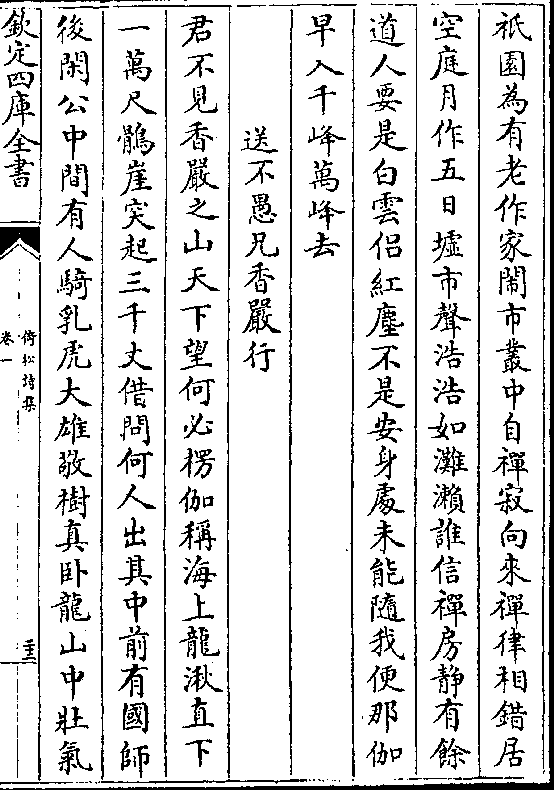 祇園為有老作家鬧市叢中自禪寂向來禪律相錯居
空庭月作五日墟市聲浩浩如灘瀨誰信禪房靜有餘
道人要是白雲侶紅塵不是安身處未能隨我便那伽
早入千峰萬峰去
送不愚兄香嚴行
君不見香嚴之山天下望何必楞伽稱海上龍湫直下
一萬尺鶻崖突起三千丈借問何人出其中前有國師
後閑公中間有人騎乳虎大雄敬樹真卧龍山中壯氣
欽定四庫全書
倚松詩集
卷一
二十三